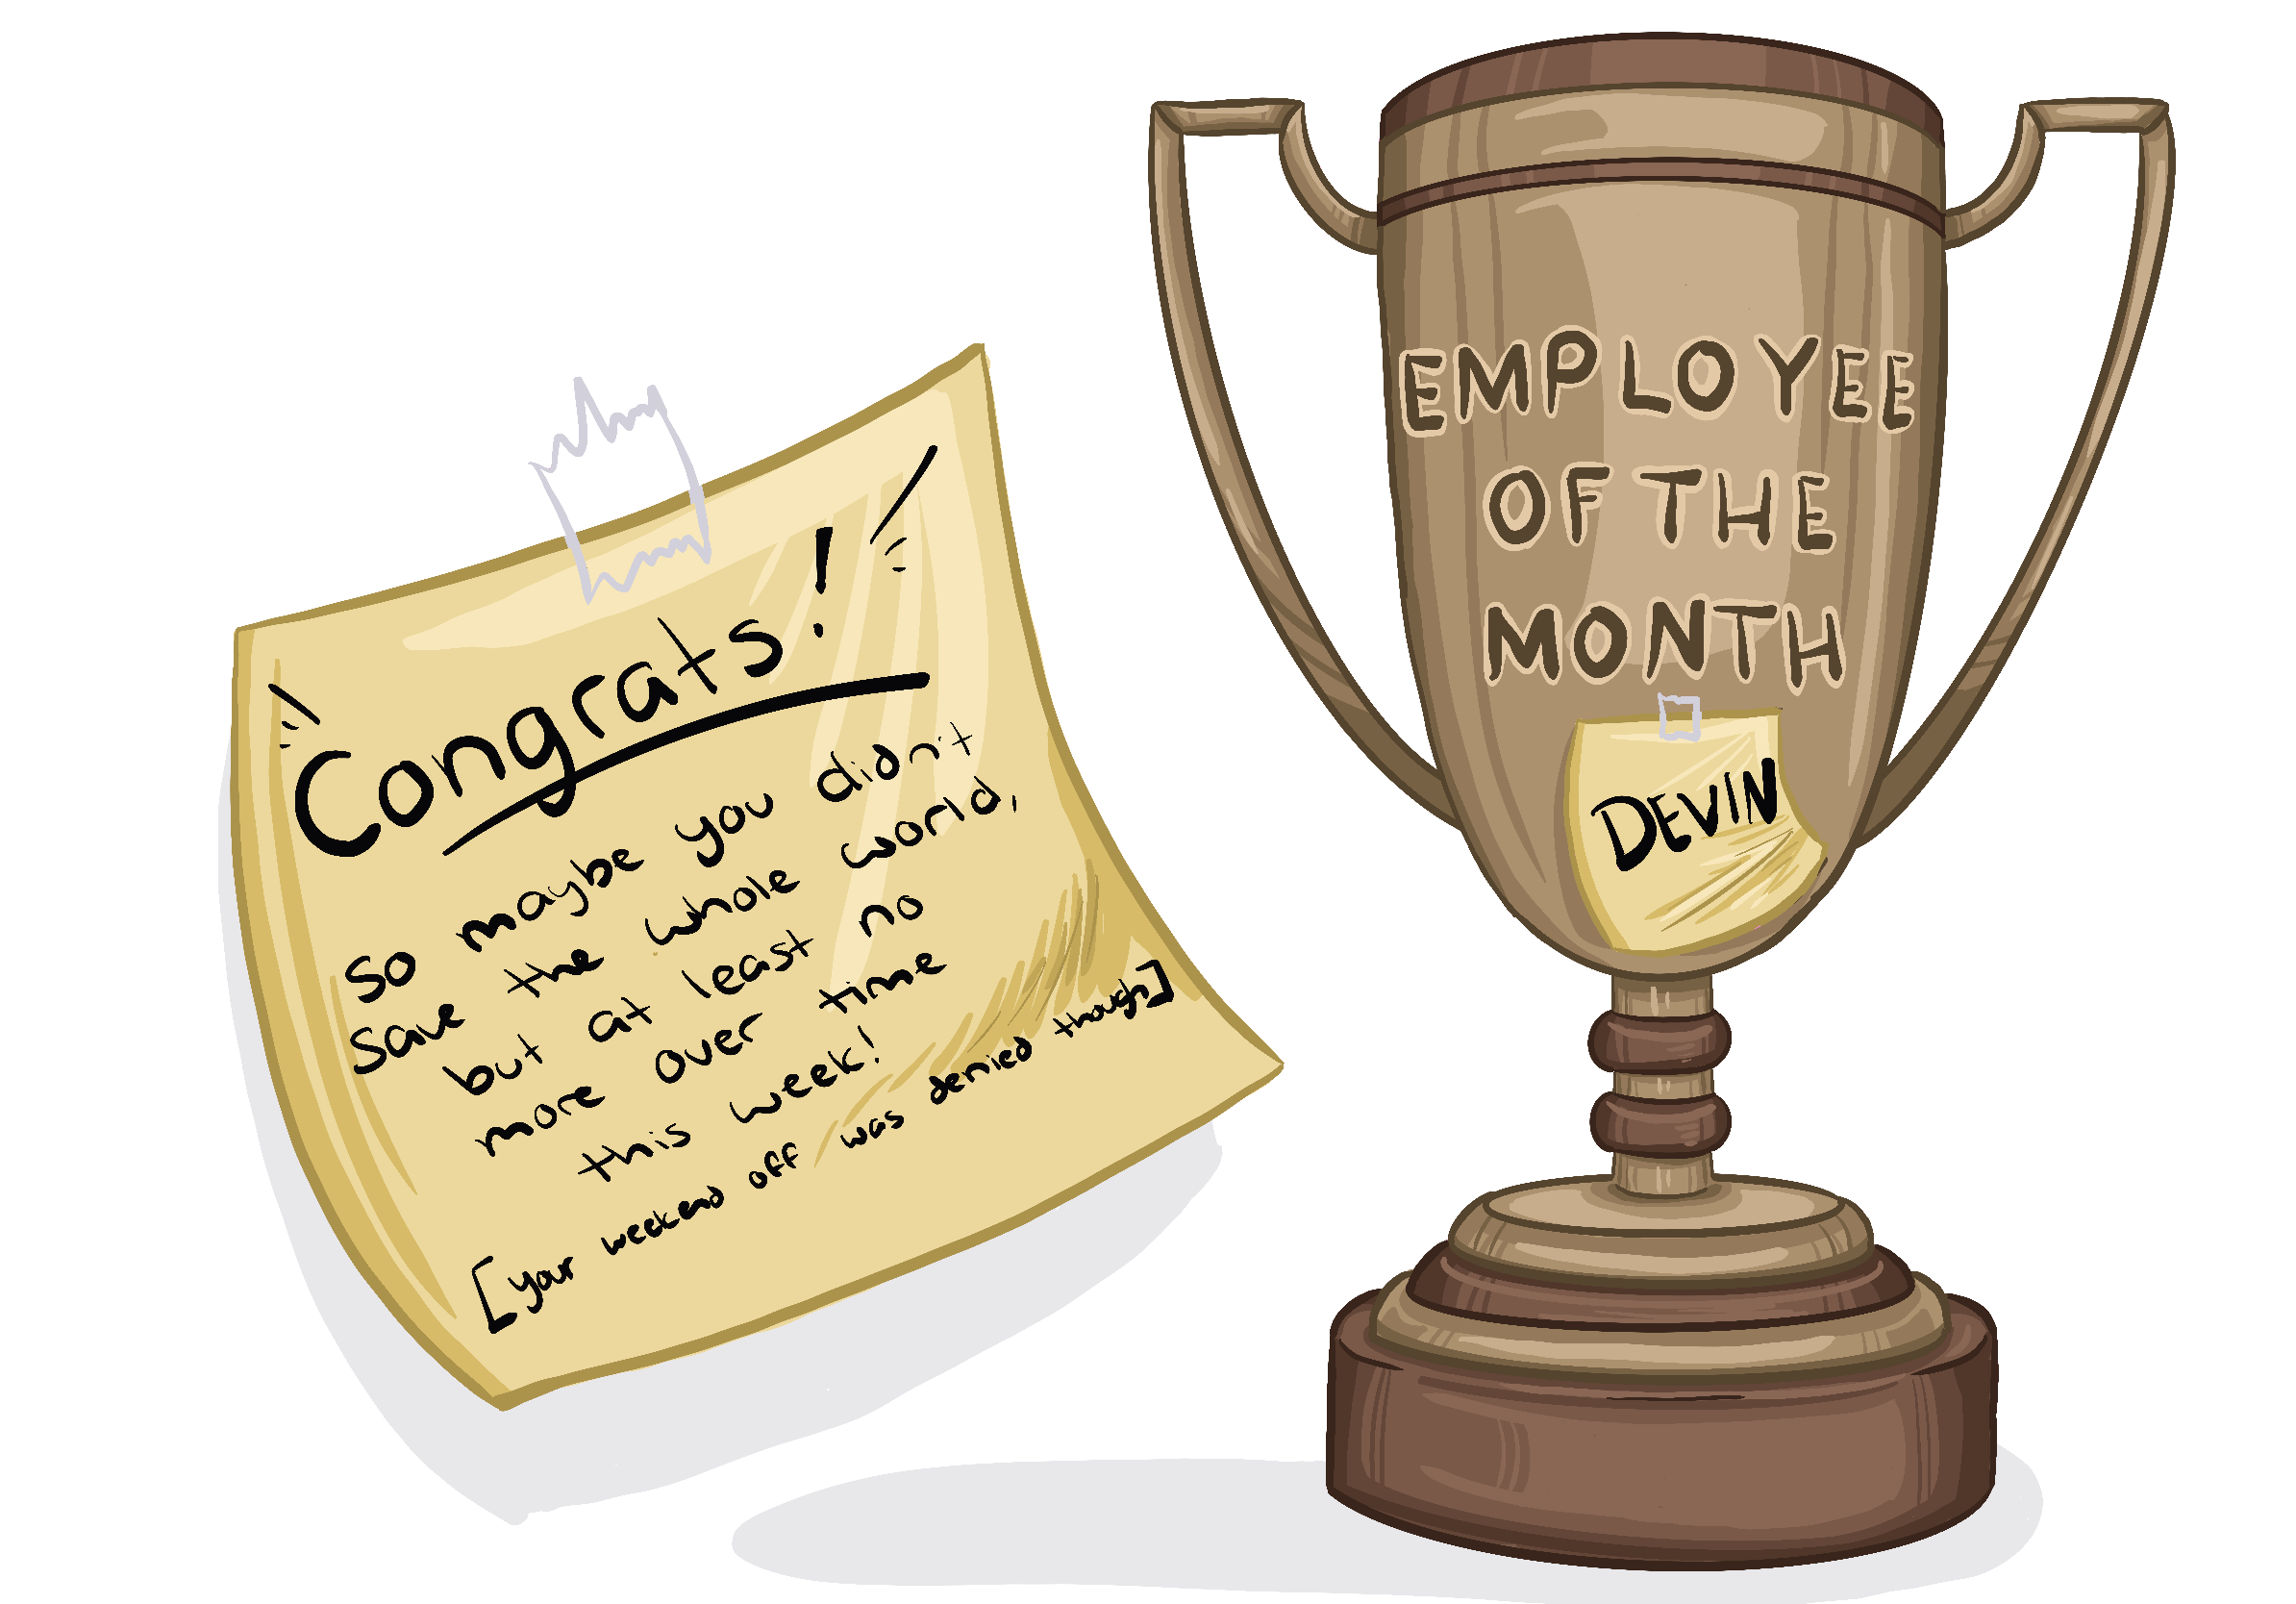 Congrats!
So maybe you didn't
save the whole world,
but at least no
more over time
this week!
[your weekend off was denied though]
EMPLOYEE
OF THE
MONTH
DEVIN